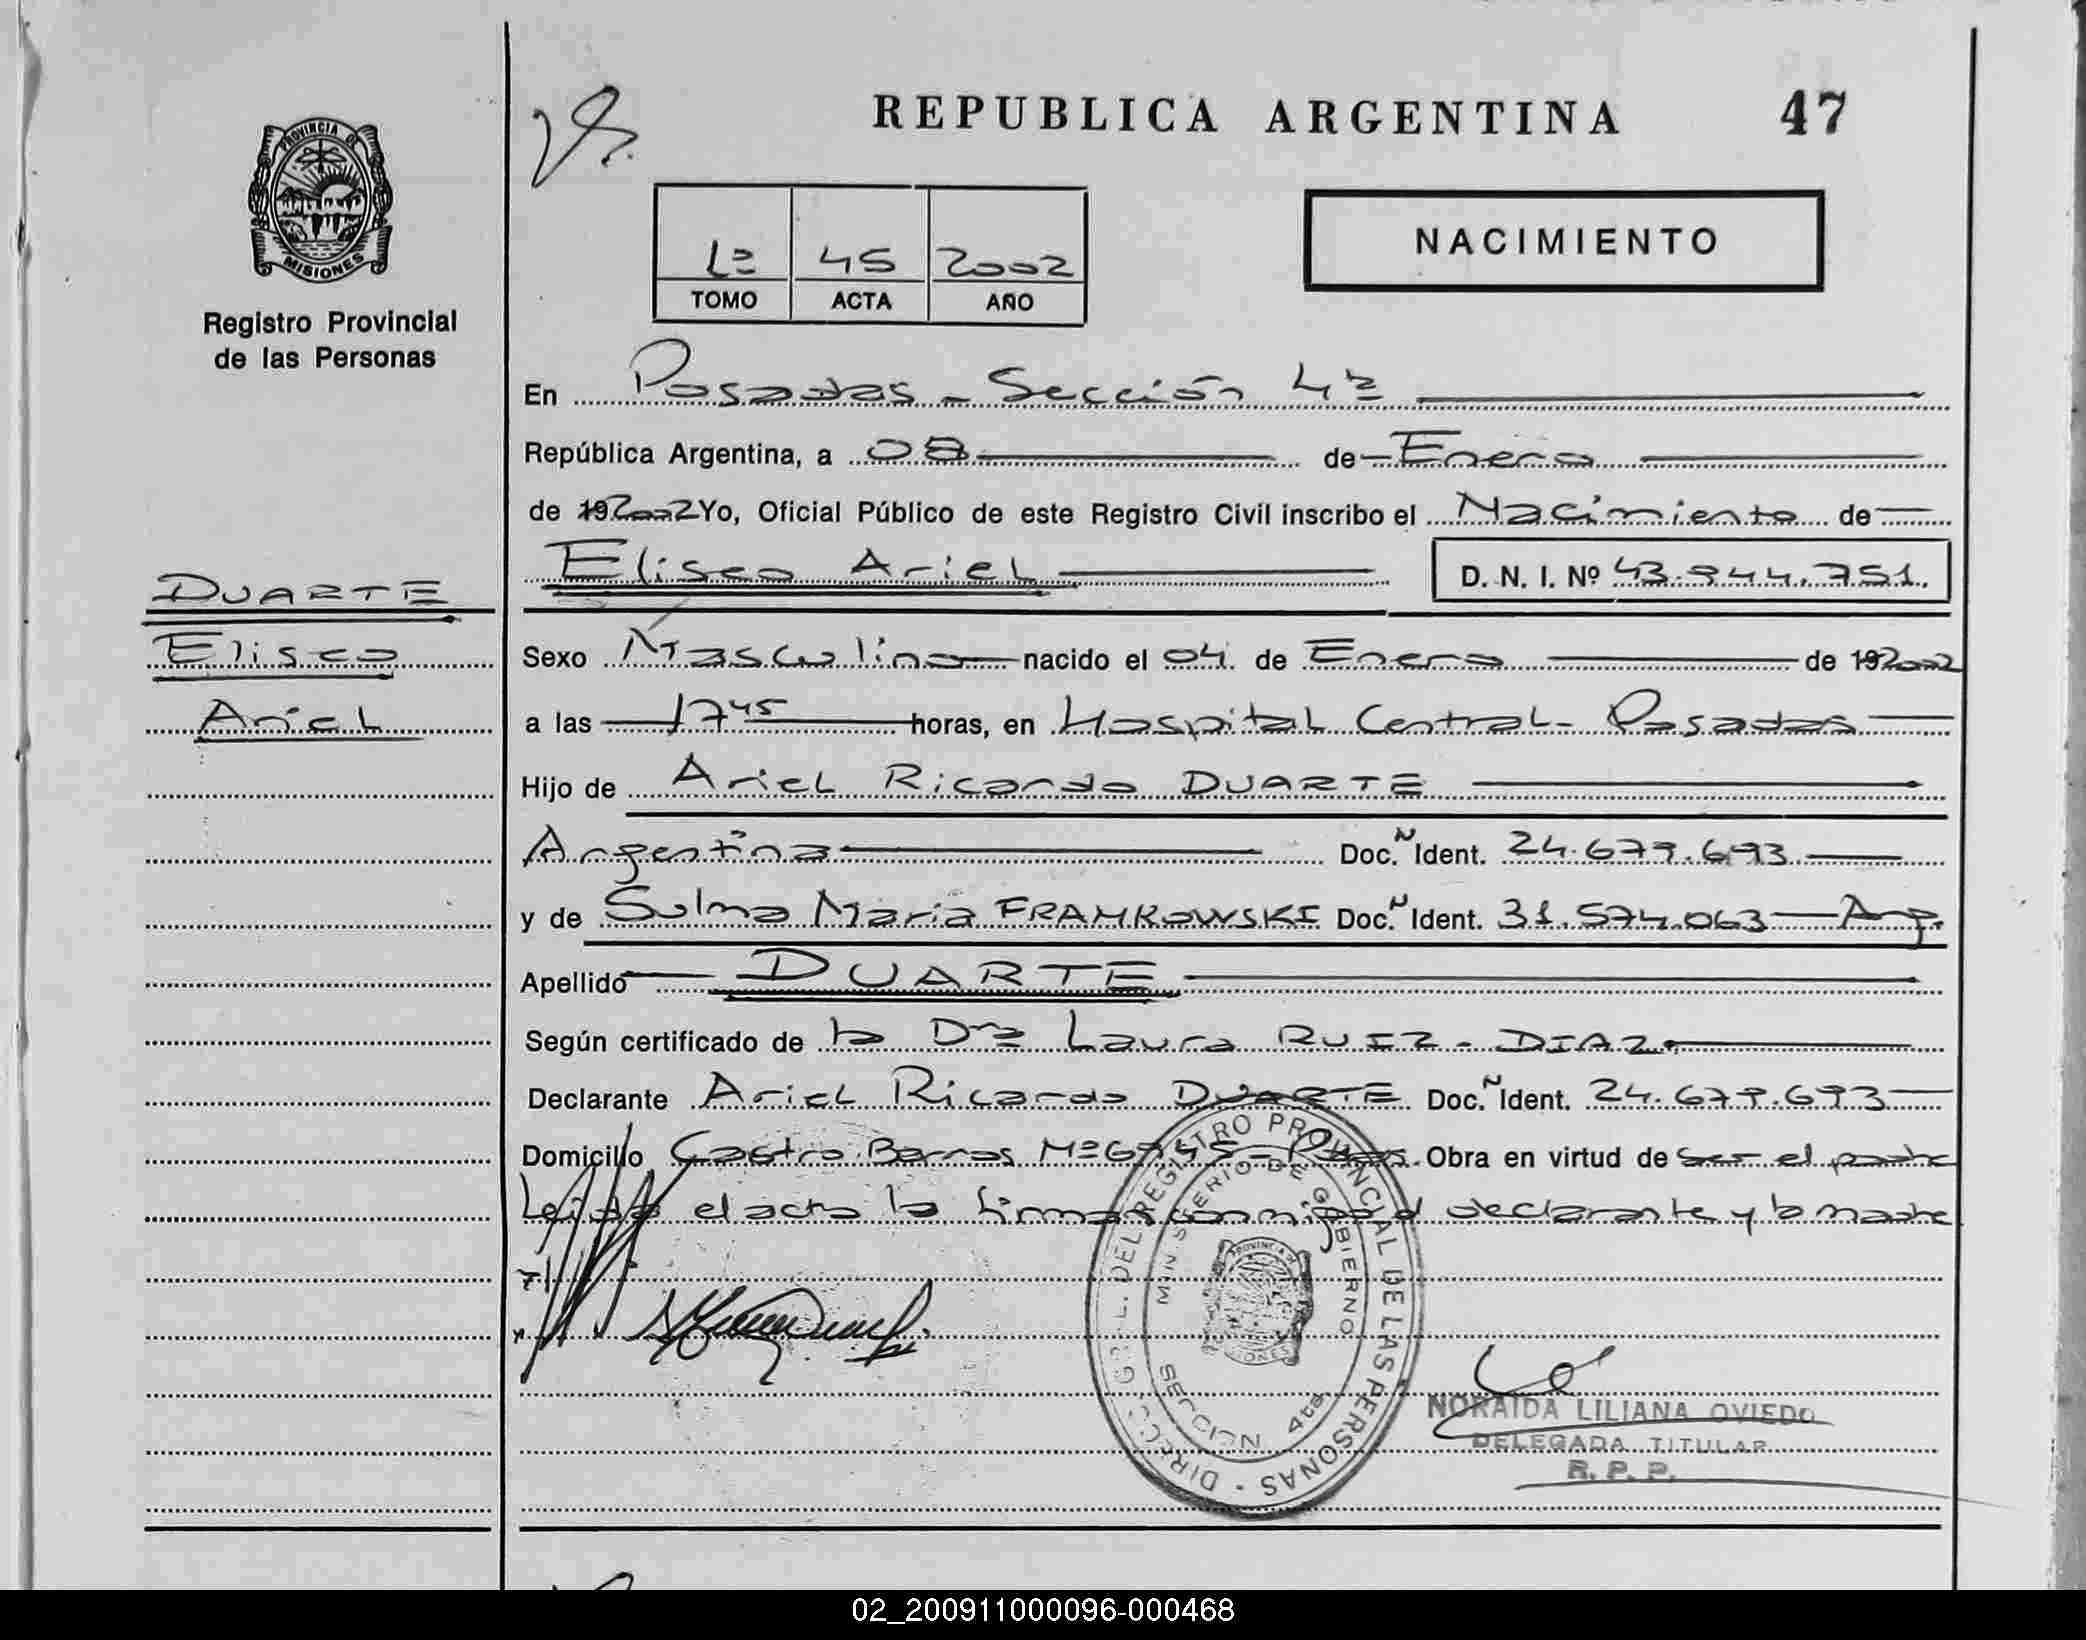 REPUBLICA ARGENTINA 47
PROVINCIA DE
MISIONES
Registro Provincial
de las Personas
1º 45 2002
TOMO ACTA AÑO
NACIMIENTO
En Posadas - Sección 4ª
República Argentina, a 08 de Enero
de 192002 Yo, Oficial Público de este Registro Civil inscribo el Nacimiento de
Eliseo Ariel D. N. I. Nº 43.944.751.
DUARTE
Eliseo
Ariel
Sexo Masculino nacido el 04 de Enero de 192002
a las 17 45 horas, en Hospital Central - Posadas
Hijo de Ariel Ricardo DUARTE
Argentina Doc. N Ident. 24.679.693
y de Sulma Maria FRAMKOWSKI Doc. N Ident. 31.574.063 Arg.
Apellido DUARTE
Según certificado de la Dra Laura RUIZ - DIAZ
Declarante Ariel Ricardo DUARTE Doc. N Ident. 24.679.693
Domicilio Castro Barros Nº - Obra en virtud de ser el padre
Leida el acta la firman conmigo el declarante y la madre
DIRECC. GRAL. DEL REGISTRO PROVINCIAL DE LAS PERSONAS
MINISTERIO DE GOBIERNO
PROVINCIA DE
MISIONES
SECCION 4ta
NORAIDA LILIANA OVIEDO
DELEGADA TITULAR
R. P. P.
02_200911000096-000468